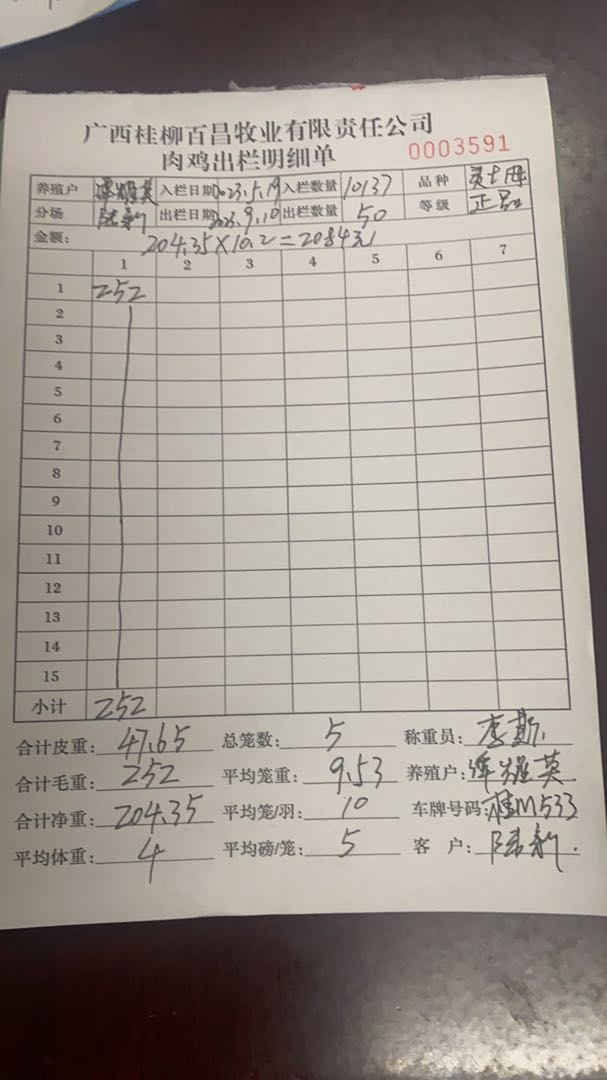 广西桂柳百昌牧业有限责任公司
肉鸡出栏明细单 0003591
养殖户 谭耀英 入栏日期 2023.5.19 入栏数量 10137 品种
分场 陆新 出栏日期 2023.9.10 出栏数量 50 等级 正品
金额: 204.35×10.2=2084元
1 2 3 4 5 6 7
1 252
2
3
4
5
6
7
8
9
10
11
12
13
14
15
小计 252
合计皮重: 47.65 总笼数: 5 称重员: 李斯
合计毛重: 252 平均笼重: 9.53 养殖户: 谭耀英
合计净重: 204.35 平均笼/羽: 10 车牌号码: 桂M533
平均体重: 4 平均磅/笼: 5 客户: 陆新